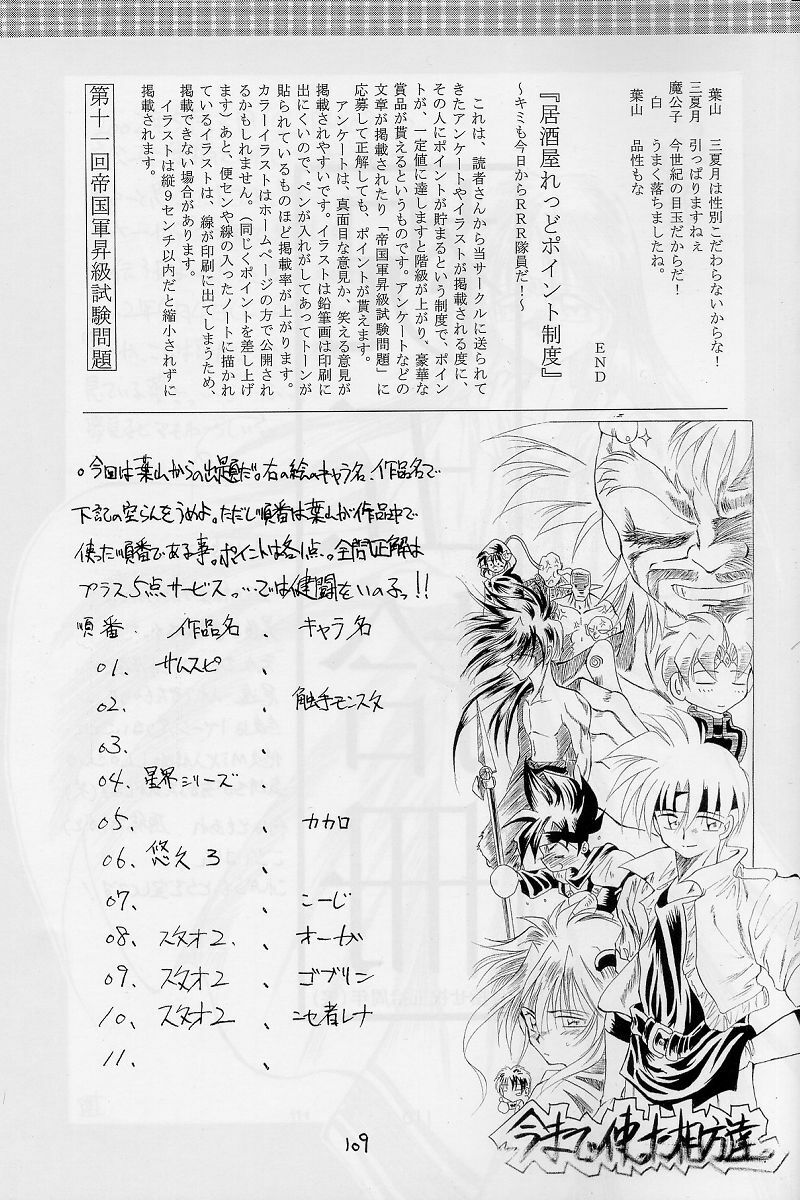 葉山　三夏月は性別こだわらないからな！
三夏月　引っぱりますねぇ
魔公子　今世紀の目玉だからだ！
白　うまく落ちましたね。
葉山　品性もな
END
『居酒屋れっどポイント制度』
～キミも今日からRRR隊員だ！～
これは、読者さんから当サークルに送られて
きたアンケートやイラストが掲載される度に、
その人にポイントが貯まるという制度で、ポイン
トが、一定値に達しますと階級が上がり、豪華な
賞品が貰えるというものです。アンケートなどの
文章が掲載されたり「帝国軍昇級試験問題」に
応募して正解しても、ポイントが貰えます。
アンケートは、真面目な意見か、笑える意見が
掲載されやすいです。イラストは鉛筆画は印刷に
出にくいので、ペンが入れがしてあってトーンが
貼られているものほど掲載率が上がります。
カラーイラストはホームページの方で公開され
るかもしれません。（同じくポイントを差し上げ
ます）あと、便センや線の入ったノートに描かれ
ているイラストは、線が印刷に出てしまうため、
掲載できない場合があります。
イラストは縦9センチ以内だと縮小されずに
掲載されます。
第十一回帝国軍昇級試験問題
。今回は葉山からの出題だ。右の絵のキャラ名、作品名で
下記の空らんをうめよ。ただし順番は葉山が作品中で
使った順番である事。ポイントは各1点。全問正解は
プラス5点サービス。…では健闘をいのるっ！！
順番．作品名、キャラ名
01．サムスピ、
02．、触手モンスタ
03．、
04．星界シリーズ、
05．、カカロ
06．悠久3、
07．、こーじ
08．スタオ2．、オーガ
09．スタオ2、ゴブリン
10．スタオ2、ニセ者レナ
11．、
今まで使った相方達
109